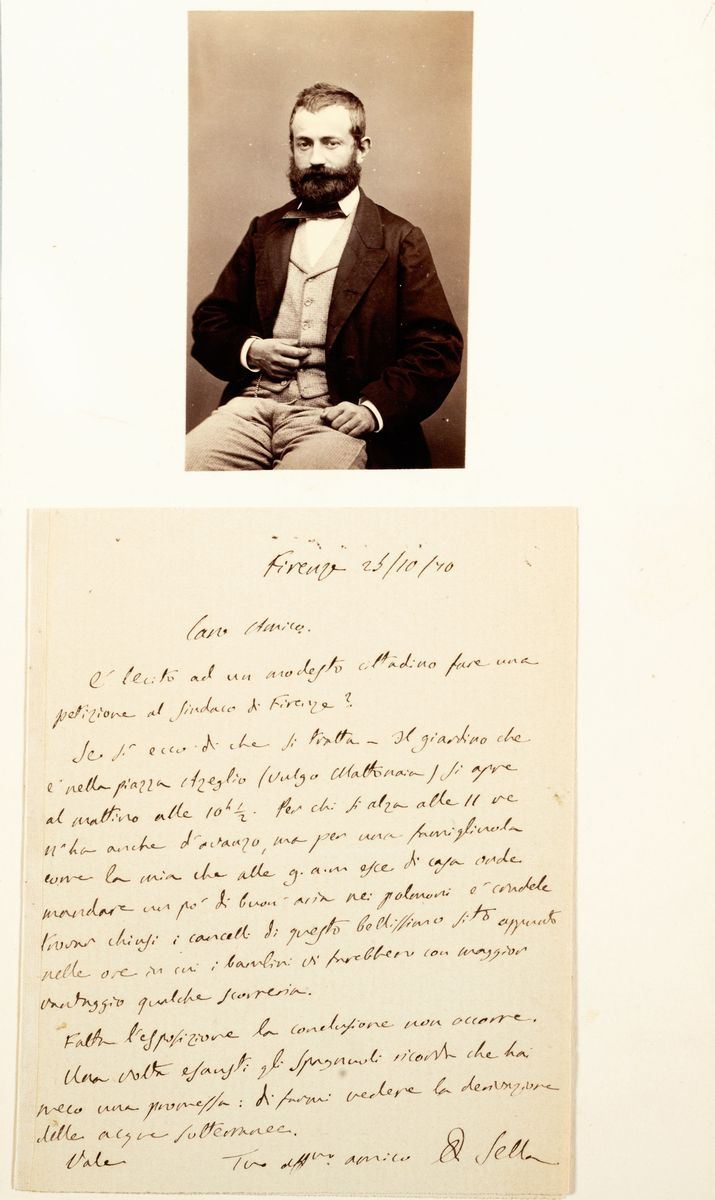 Firenze 25/10/70
Caro Amico.
È lecito ad un modesto cittadino fare una
petizione al Sindaco di Firenze?
Se sì ecco di che si tratta – Il giardino che
è nella piazza Azeglio (vulgo Mattonaia) si apre
al mattino alle 10h ½. Per chi si alza alle 11 ve
n'ha anche d'avanzo, ma per una famigliuola
come la mia che alle 9. a.m esce di casa onde
mandare un pò di buon'aria nei polmoni è crudele
trovar chiusi i cancelli di questo bellissimo sito appunto
nelle ore in cui i bambini vi farebbero con maggior
vantaggio qualche scorreria.
Fatta l'esposizione la conclusione non occorre.
Una volta esausti gli Spagnuoli ricorda che hai
meco una promessa: di farmi vedere la derivazione
delle acque sotterranee.
Vale
Tuo affmo. amico Q Sella